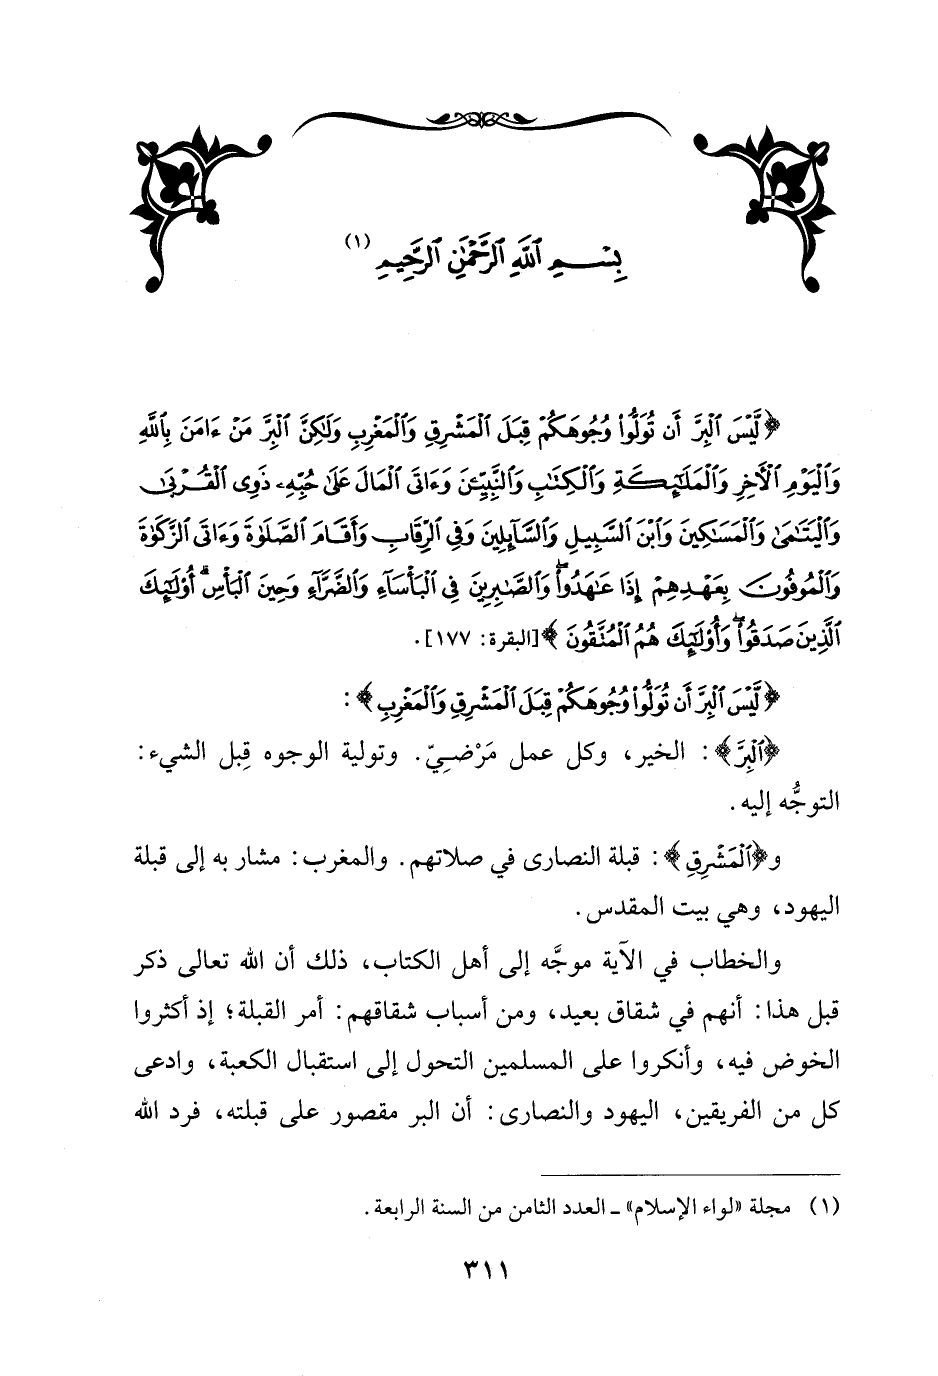 بِسْمِ ٱللَّهِ ٱلرَّحْمَٰنِ ٱلرَّحِيمِ (١)
﴿لَّيْسَ ٱلْبِرَّ أَن تُوَلُّوا۟ وُجُوهَكُمْ قِبَلَ ٱلْمَشْرِقِ وَٱلْمَغْرِبِ وَلَٰكِنَّ ٱلْبِرَّ مَنْ ءَامَنَ بِٱللَّهِ
وَٱلْيَوْمِ ٱلْأَخِرِ وَٱلْمَلَٰٓئِكَةِ وَٱلْكِتَٰبِ وَٱلنَّبِيِّۦنَ وَءَاتَى ٱلْمَالَ عَلَىٰ حُبِّهِۦ ذَوِى ٱلْقُرْبَىٰ
وَٱلْيَتَٰمَىٰ وَٱلْمَسَٰكِينَ وَٱبْنَ ٱلسَّبِيلِ وَٱلسَّآئِلِينَ وَفِى ٱلرِّقَابِ وَأَقَامَ ٱلصَّلَوٰةَ وَءَاتَى ٱلزَّكَوٰةَ
وَٱلْمُوفُونَ بِعَهْدِهِمْ إِذَا عَٰهَدُوا۟ۖ وَٱلصَّٰبِرِينَ فِى ٱلْبَأْسَآءِ وَٱلضَّرَّآءِ وَحِينَ ٱلْبَأْسِۗ أُو۟لَٰٓئِكَ
ٱلَّذِينَ صَدَقُوا۟ۖ وَأُو۟لَٰٓئِكَ هُمُ ٱلْمُتَّقُونَ﴾ [البقرة: ١٧٧].
﴿لَّيْسَ ٱلْبِرَّ أَن تُوَلُّوا۟ وُجُوهَكُمْ قِبَلَ ٱلْمَشْرِقِ وَٱلْمَغْرِبِ﴾:
﴿ٱلْبِرَّ﴾: الخير، وكل عمل مَرْضيّ. وتولية الوجوه قِبل الشيء:
التوجُّه إليه.
و﴿ٱلْمَشْرِقِ﴾: قبلة النصارى في صلاتهم. والمغرب: مشار به إلى قبلة
اليهود، وهي بيت المقدس.
والخطاب في الآية موجَّه إلى أهل الكتاب، ذلك أن الله تعالى ذكر
قبل هذا: أنهم في شقاق بعيد، ومن أسباب شقاقهم: أمر القبلة؛ إذ أكثروا
الخوض فيه، وأنكروا على المسلمين التحول إلى استقبال الكعبة، وادعى
كل من الفريقين، اليهود والنصارى: أن البر مقصور على قبلته، فرد الله
(١) مجلة «لواء الإسلام» ـ العدد الثامن من السنة الرابعة.
٣١١